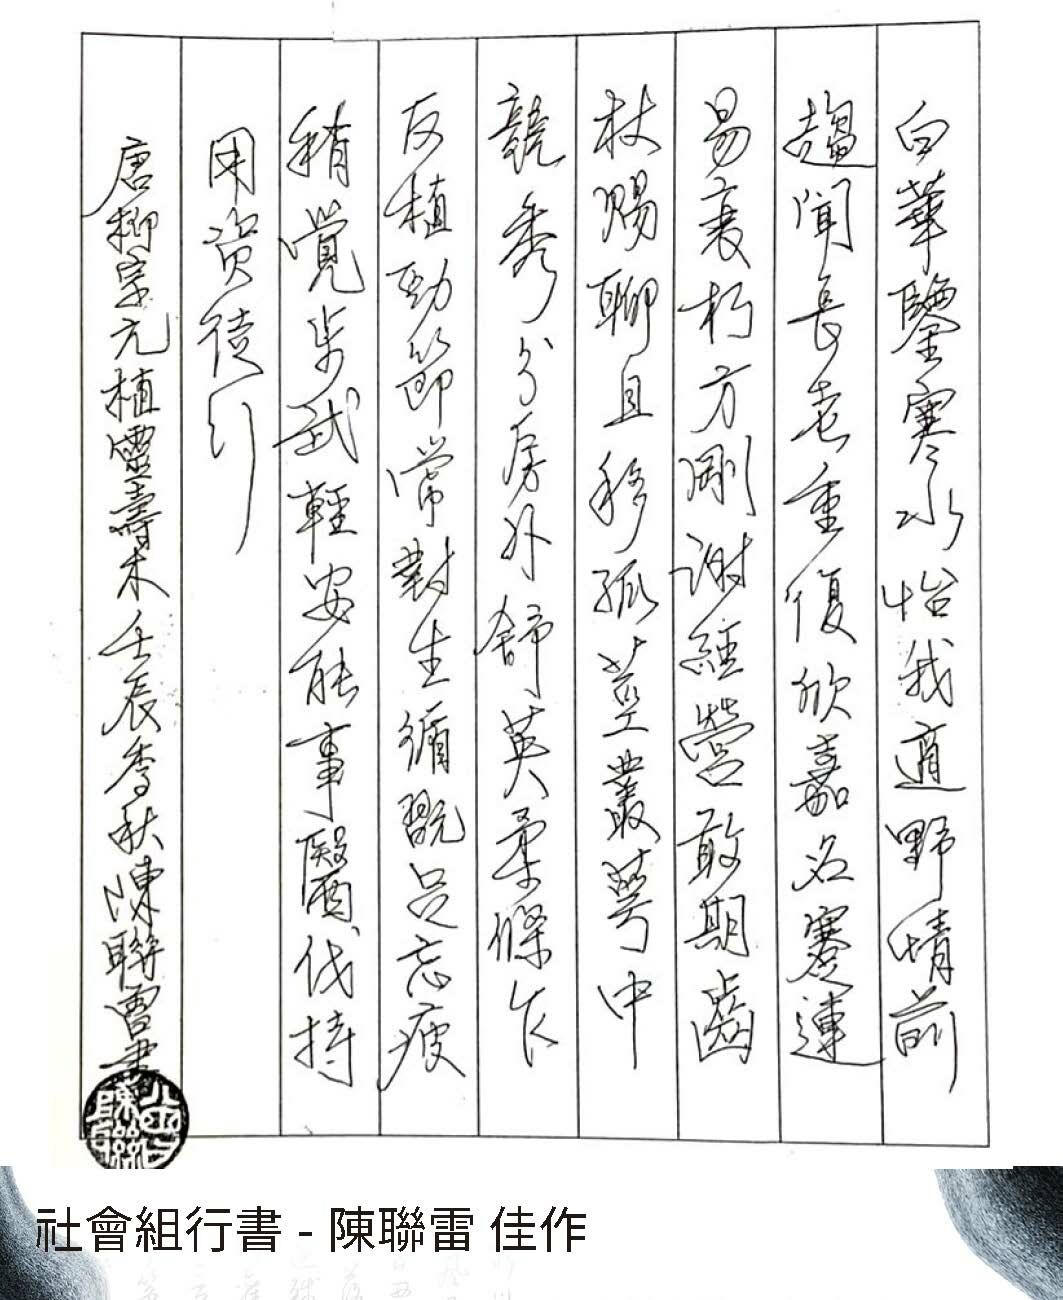 白華鑒寒水怡我適野情前
趨聞長老重復欣嘉名蹇連
易衰朽方剛謝經營敢期齒
杖賜聊且移孤莖叢萼中
競秀分房外舒英柔條乍
反植勁節常對生翫足忘疲
稍覺步武輕安能事醫伐持
用資徒行
唐柳宗元植靈壽木壬辰季秋陳聯雷書
社會組行書 - 陳聯雷 佳作